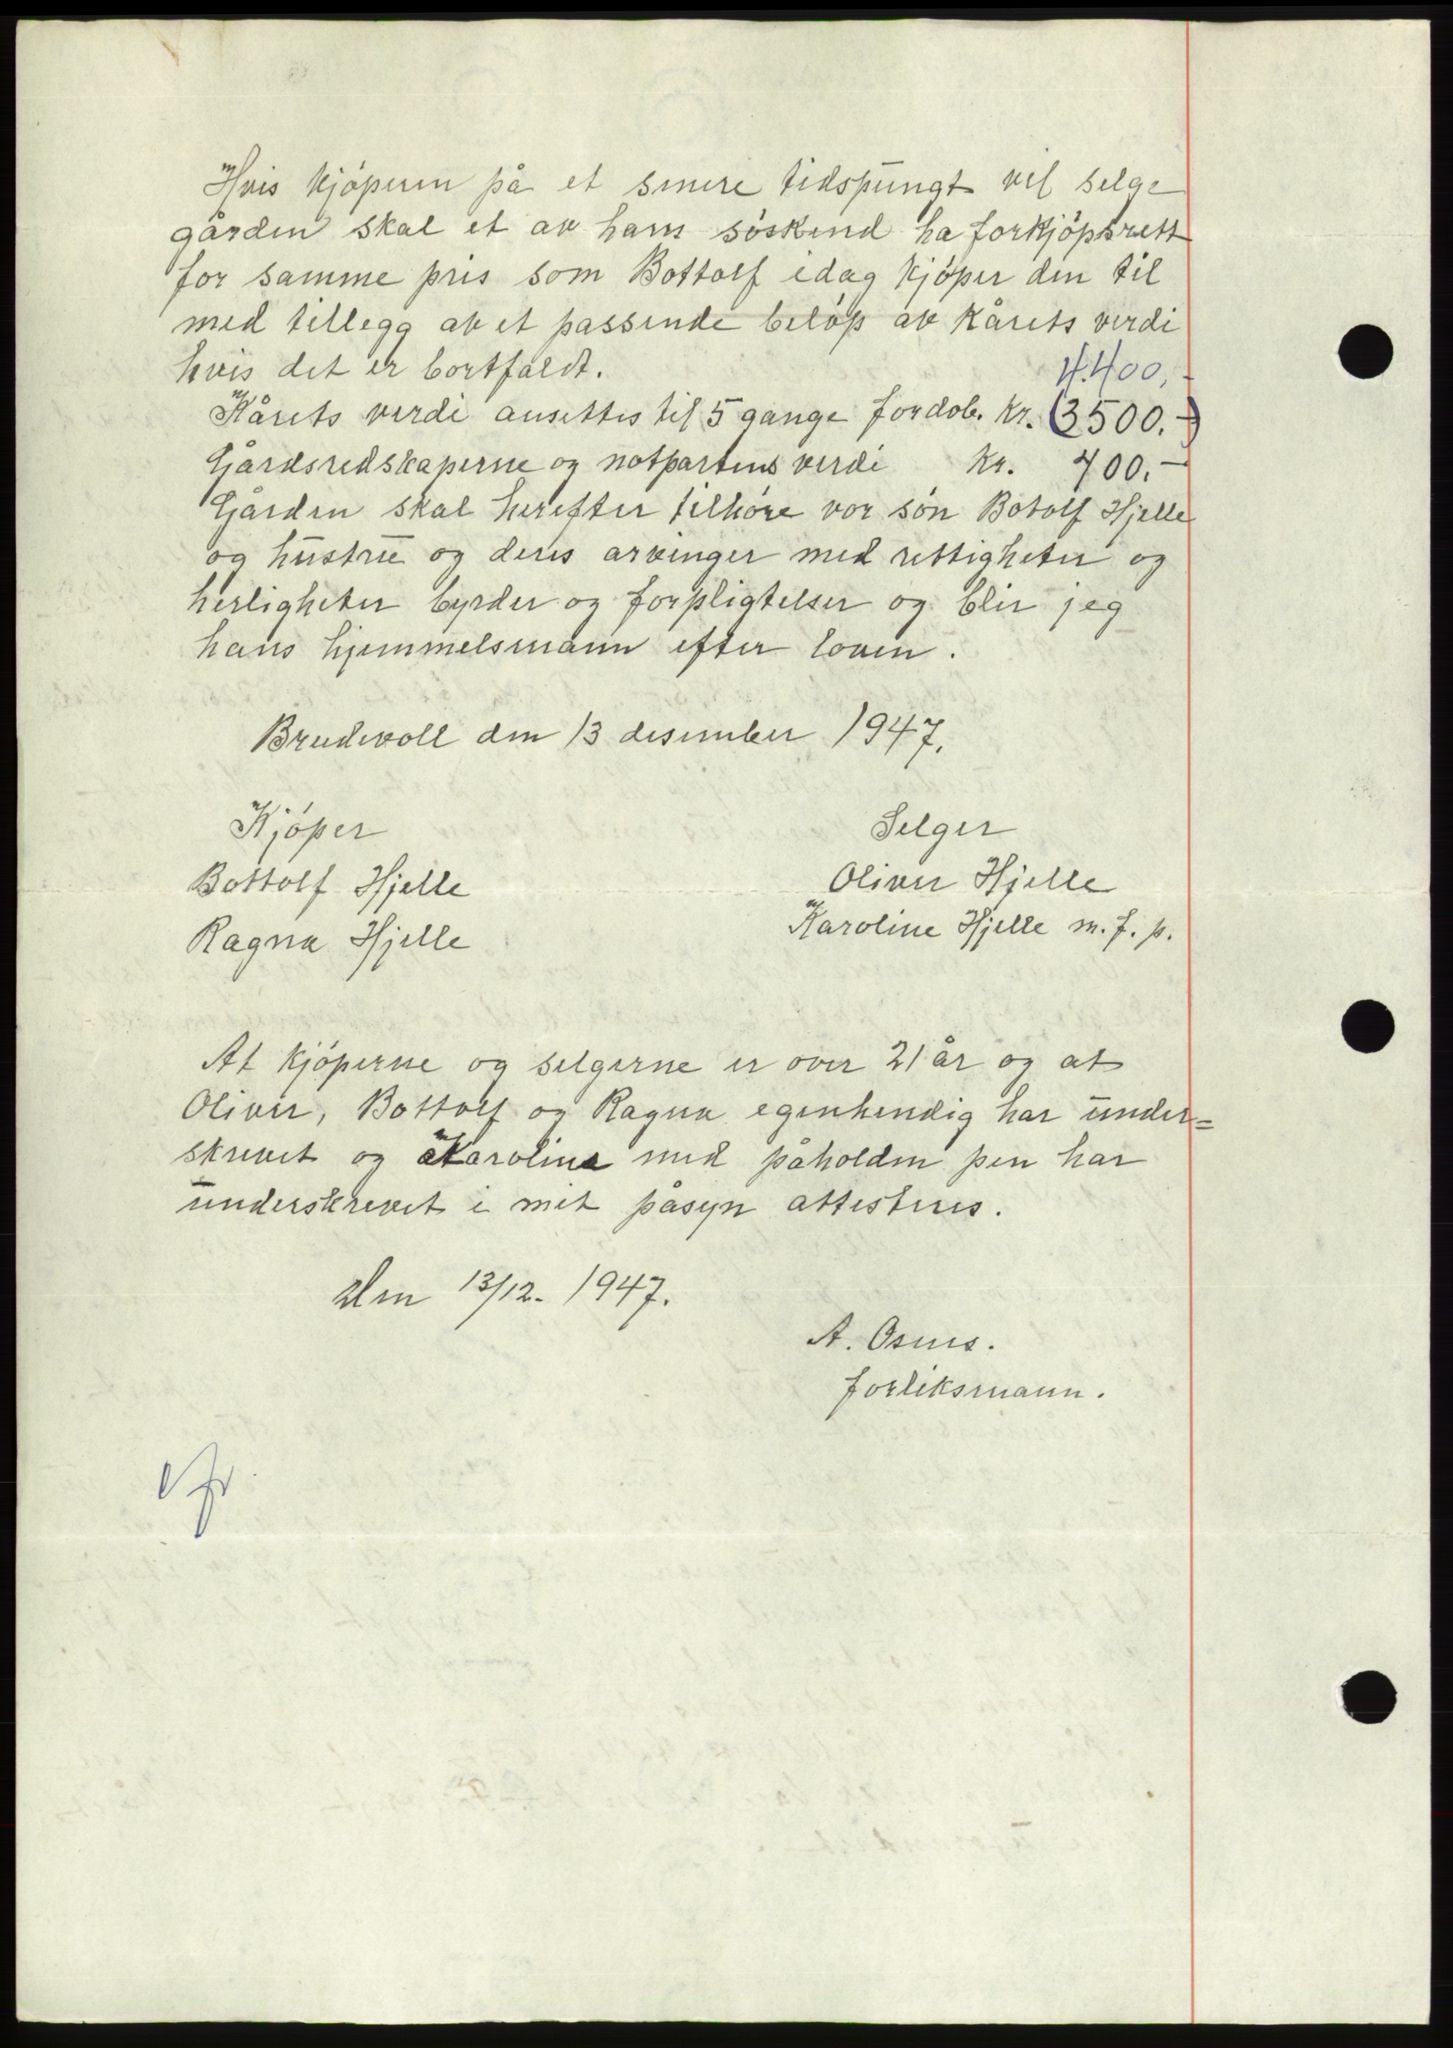 Hvis kjöperen på et senere tidspungt vil selge
gården skal et av hans söskend ha forkjöpsrett
for samme pris som Bottolf idag kjöper den til
med tillegg av et passende belöp av kårets verdi
hvis det er bortfaldt.
4.400,-
Kårets verdi ansettes til 5 gange fordob. kr. (3500.-)
Gårdsredskaperne og notpartens verdi kr. 400.-
Gården skal herefter tilhöre vor sön Botolf Hjelle
og hustru og deres arvinger med rettigheter og
herligheter byrder og forpligtelser og blir jeg
hans hjemmelsmann efter loven.
Brudevoll den 13 desember 1947.
Kjöper
Selger
Bottolf Hjelle
Oliver Hjelle
Ragna Hjelle
Karoline Hjelle m. f. p.
At kjöperne og selgerne er over 21 år og at
Oliver, Bottolf og Ragna egenhendig har under=
skrevet og Karoline med påholden pen har
underskrevet i mit påsyn attesteres.
Den 13/12. 1947.
A. Osnes.
forliksmann.